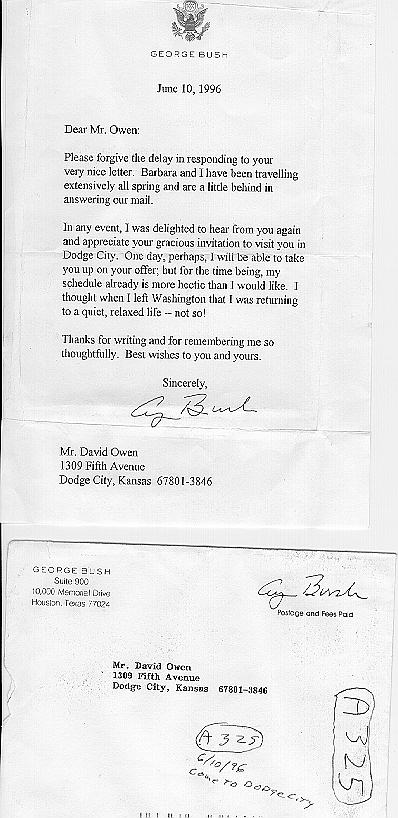 GEORGE BUSH
June 10, 1996
Dear Mr. Owen:
Please forgive the delay in responding to your
very nice letter. Barbara and I have been travelling
extensively all spring and are a little behind in
answering our mail.
In any event, I was delighted to hear from you again
and appreciate your gracious invitation to visit you in
Dodge City. One day, perhaps, I will be able to take
you up on your offer; but for the time being, my
schedule already is more hectic than I would like. I
thought when I left Washington that I was returning
to a quiet, relaxed life -- not so!
Thanks for writing and for remembering me so
thoughtfully. Best wishes to you and yours.
Sincerely,
Gg Bush
Mr. David Owen
1309 Fifth Avenue
Dodge City, Kansas 67801-3846
GEORGE BUSH
Suite 900
10,000 Memorial Drive
Houston, Texas 77024
Gg Bush
Postage and Fees Paid
Mr. David Owen
1309 Fifth Avenue
Dodge City, Kansas 67801-3846
A 325
6/10/96
COME TO DODGE CITY
A 325